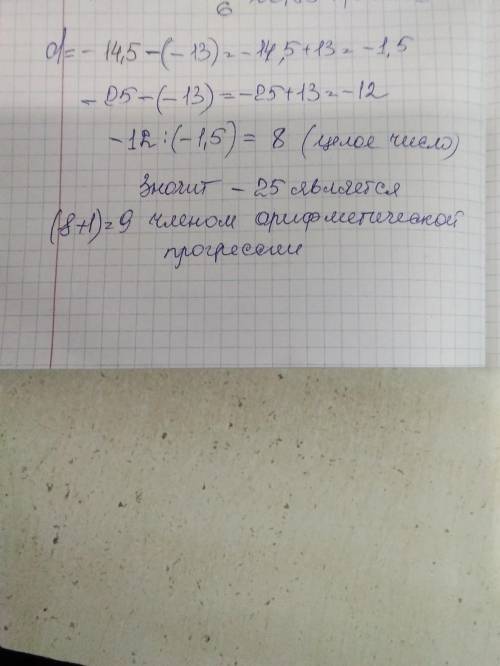 d = - 14,5 - (- 13) = - 14,5 + 13 = - 1,5
- 25 - (- 13) = - 25 + 13 = - 12
- 12 : (- 1,5) = 8 (целое число)
Значит - 25 является
(8+1) = 9 членом арифметической
прогрессии